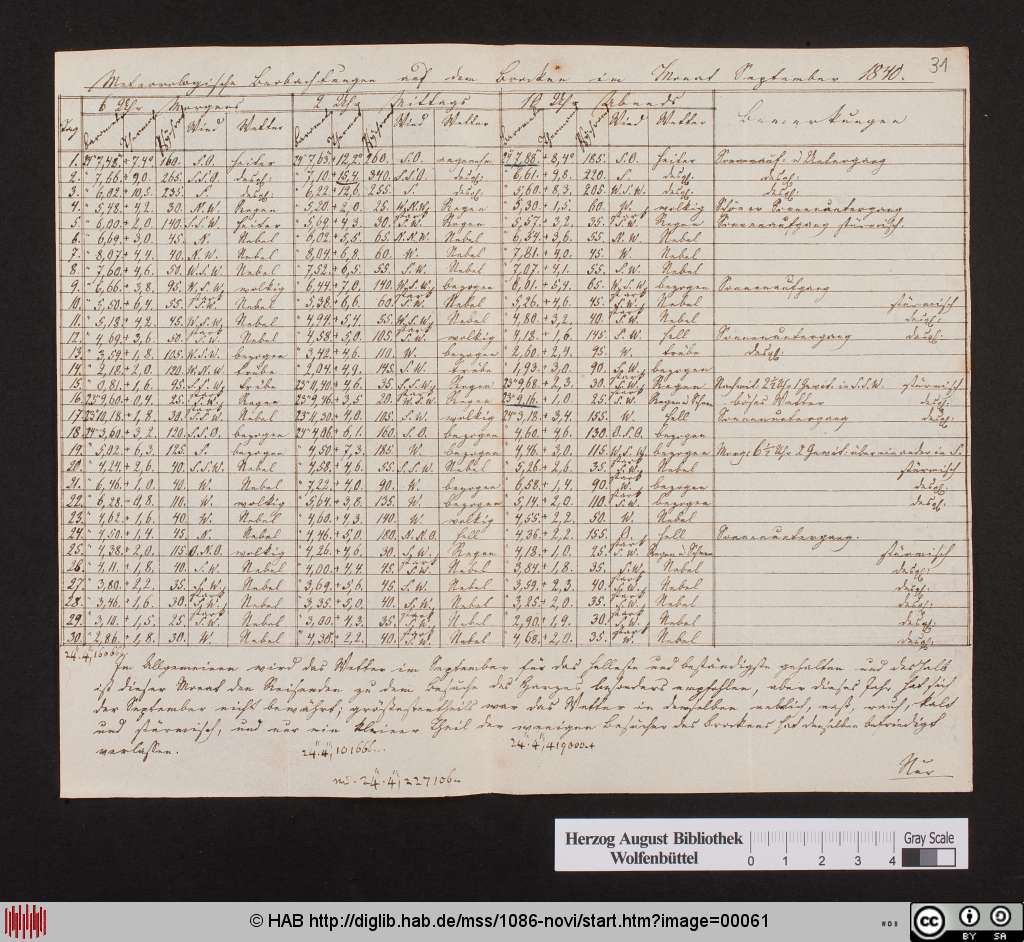 31
Meteorologische Beobachtungen auf dem Brocken im Monat September 1840.
6 Uhr Morgens 2 Uhr Mittags 10 Uhr Abends Bemerkungen
Tag Barom. Therm. Wind Wetter Barom. Therm. Wind Wetter Barom. Therm. Wind Wetter
1. 24" 7,48. + 7,4° 160. S.O. heiter 24" 7,63 + 12,2° 260. S.O. 24" 7,86. + 8,4° 185. S.O. heiter Sonnenauf. u Untergang
2. " 7,66 + 9,0. 265. S.S.O. desgl. " 7,10 + 15,4. 340. S.S.O. desgl. " 6,61. + 9,8. 220. S. desgl. desgl.
3. " 6,02 + 10,5. 235. S. desgl. " 6,22 + 12,6. 255. S. desgl. " 5,60 + 8,3. 205. W.S.W. desgl. desgl.
4. " 5,48. + 4,2. 30. N.W. Regen " 5,20 + 2,0. 25. W.N.W. stark Regen " 5,30 + 1,5. 60. W. wolkig Schöner Sonnenuntergang
5. " 6,00 + 2,0. 140. S.S.W. heiter " 5,69 + 4,3. 30. S.W. Regen " 5,57 + 3,2. 35. S.W. stark Regen Sonnenaufgang stürmisch.
6. " 6,69 + 3,0. 45. N. Nebel " 6,02 + 5,5. 65. N.N.W. Nebel " 6,34 + 3,6. 55. N.W. Nebel
7. " 8,07 + 4,4. 40. N.W. Nebel " 8,04 + 6,8. 60. W. Nebel " 7,81 + 4,0. 45. W. Nebel
8. " 7,60 + 4,6. 50. W.S.W. Nebel " 7,52 + 6,5. 55. S.W. Nebel " 7,07 + 4,1. 55. S.W. Nebel
9. " 6,66 + 3,8. 95. W.S.W. wolkig " 6,44 + 7,0. 140. W.S.W. bezogen " 6,01 + 5,4. 65. W.S.W. bezogen Sonnenaufgang
10. " 5,50 + 6,4. 55. S.W. Nebel " 5,38 + 6,6. 60. S.W. Nebel " 5,26 + 4,6. 45. S.W. stark Nebel stürmisch
11. " 5,18 + 4,2. 45. W.S.W. Nebel " 4,94 + 5,4. 55. W.S.W. Nebel " 4,80 + 3,2. 40. S.W. Nebel desgl.
12. " 4,69 + 3,6. 50. S.W. stark Nebel " 4,58 + 5,0. 105. S.W. stark wolkig " 4,18. + 1,6. 145. S.W. hell Sonnenuntergang desgl.
13. " 3,59 + 1,8. 105. W.S.W. bezogen " 3,42 + 4,6. 110. W. bezogen " 2,60 + 2,4. 95. W. trübe desgl.
14. " 2,18 + 2,0. 120. W.N.W. trübe " 2,04 + 4,9. 145. S.W. trübe " 1,93 + 3,0. 90. S.W. bezogen
15. " 0,81 + 1,6. 95. S.S.W. trübe 23" 11,40 + 4,6. 35. S.S.W. Regen 23" 9,68 + 2,3. 30. S.W. Regen Nachmit. 2 1/2 Uhr 1 Gewit. in S.S.W. stürmisch
16. 23" 9,60 + 0,4. 25. Regen 23" 9,46 + 3,5. 20. Regen 23" 9,16. + 1,0. 25. S.W. Regen u Schnee böses Wetter desgl.
17. 23" 10,18 + 1,8. 30. S.W. Nebel 23" 11,30 + 4,0. 105. S.W. wolkig 24" 3,18 + 3,4. 155. W. hell Sonnenuntergang desgl.
18. 24" 3,60 + 3,2. 120. S.S.O. bezogen 24" 4,06 + 6,1. 160. S.O. bezogen " 4,60 + 4,6. 130. O.S.O. bezogen
19. " 5,02 + 6,3. 125. S. bezogen " 4,50 + 7,3. 185. W. bezogen " 4,46 + 3,0. 115. W.S.W. bezogen Morg. 6 1/2 Uhr 2 Gewit. über einander in S.
20. " 4,24 + 2,6. 40. S.S.W. Nebel " 4,58 + 4,6. 55. S.S.W. Nebel " 5,26 + 2,6. 35. S.W. stark Nebel stürmisch
21. " 6,46 + 1,0. 40. W. Nebel " 7,22 + 4,0. 90. W. bezogen " 6,58 + 1,4. 90. W. bezogen desgl.
22. " 6,28 + 0,8. 110. W. wolkig " 5,64 + 3,8. 135. W. bezogen " 5,14 + 2,0. 110. S.W. bezogen desgl.
23. " 4,62 + 1,6. 40. W. Nebel " 4,60 + 4,3. 140. W. wolkig " 4,55 + 2,2. 50. W. Nebel
24. " 4,50 + 1,4. 45. N. Nebel " 4,46 + 5,0. 180. N.N.O. hell " 4,36 + 2,2. 155. O. hell Sonnenuntergang.
25. " 4,38 + 2,0. 115. O.N.O. wolkig " 4,26 + 4,6. 30. S.W. Regen " 4,18 + 1,0. 25. S.W. stark Regen u Schnee stürmisch
26. " 4,11 + 1,8. 40. S.W. Nebel " 4,00 + 4,4. 45. S.W. Nebel " 3,84 + 1,8. 35. S.W. Nebel desgl.
27. " 3,80 + 2,2. 35. S.W. Nebel " 3,69 + 5,6. 45. S.W. Nebel " 3,59 + 2,3. 40. S.W. stark Nebel desgl.
28. " 3,46 + 1,6. 30. S.W. stark Nebel " 3,35 + 5,0. 40. S.W. Nebel " 3,25 + 2,0. 35. S.W. stark Nebel desgl.
29. " 3,10 + 1,5. 25. S.W. stark Nebel " 3,00 + 4,3. 35. S.W. stark Nebel " 2,90 + 1,9. 30. S.W. stark Nebel desgl.
30. " 2,86 + 1,8. 30. W. Nebel " 4,38 + 2,2. 40. S.W. Nebel " 4,68 + 2,0. 35. W. stark Nebel desgl.
Im Allgemeinen wird das Wetter im September für das hellste und beständigste gehalten und deshalb
ist dieser Monat den Reisenden zu dem Besuche des Harzes besonders empfohlen, aber dieses Jahr hat sich
der September nicht bewährt; größtentheils war das Wetter in demselben neblich, naß, rauh, kalt
und stürmisch, und nur ein kleiner Theil der wenigen Besucher des Brockens hat denselben befriedigt
verlassen.
Nur
Herzog August Bibliothek
Wolfenbüttel
0 1 2 3 4
Gray Scale
© HAB http://diglib.hab.de/mss/1086-novi/start.htm?image=00061
WDB
cc BY SA